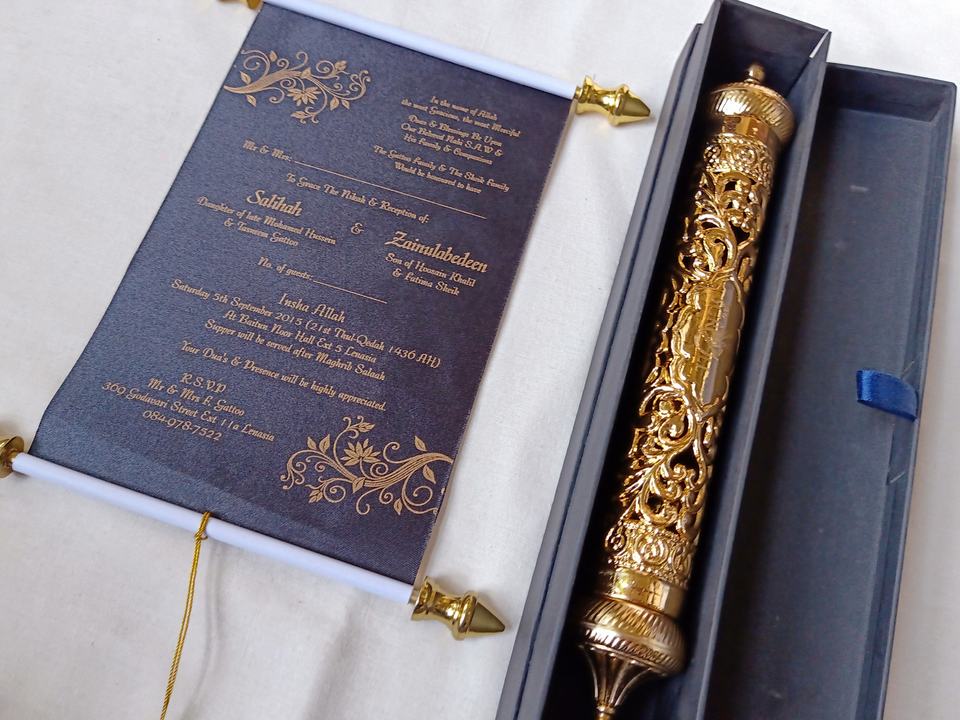 In the name of Allah
the most Gracious, the most Merciful
Duas & Blessings Be Upon
Our Beloved Nabi S.A.W &
His Family & Companions
The Gattoo Family & The Sheik Family
Would be honoured to have
Mr & Mrs:
To Grace The Nikah & Reception of:
Salihah
Daughter of late Mohamed Hussein
& Tasneem Gattoo
&
Zainulabedeen
Son of Hoosain Khalil
& Fatima Sheik
No. of guests:
Insha Allah
Saturday 5th September 2015 (21st Thul-Qedah 1436 AH)
At Baitun Noor Hall Ext 5 Lenasia
Supper will be served after Maghrib Salaah
Your Dua's & Presence will be highly appreciated.
R.S.V.P
Mr & Mrs E. Gattoo
369 Godavari Street Ext 11a Lenasia
084-978-7522